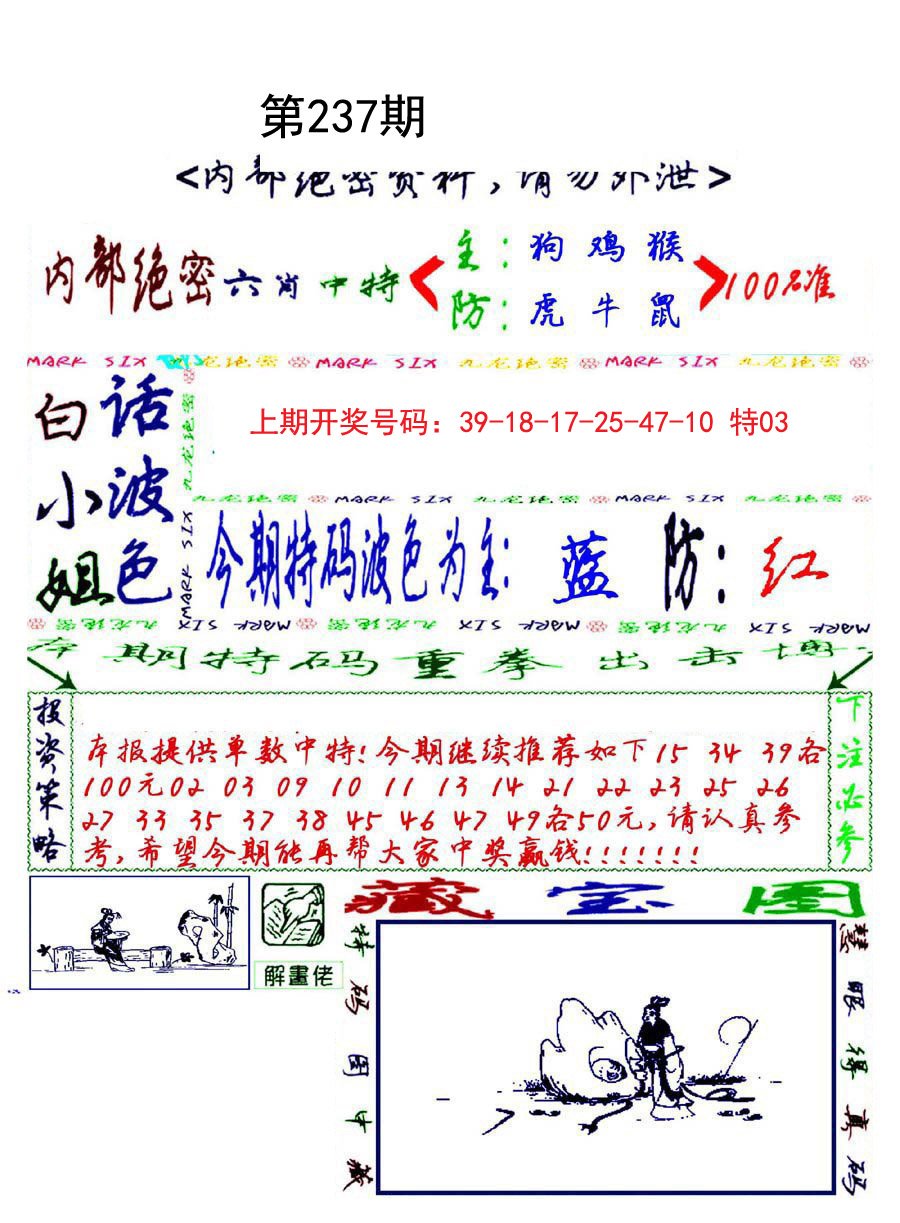 第237期
<内部绝密资料,请勿外泄>
内部绝密六肖中特
主:狗 鸡 猴
防:虎 牛 鼠
100%准
MARK SIX 九龙绝密 MARK SIX 九龙绝密 MARK SIX 九龙绝密
白话
小波
姐色
九龙绝密
MARK SIX
上期开奖号码：39-18-17-25-47-10 特03
九龙绝密 MARK SIX 九龙绝密 MARK SIX 九龙绝密
今期特码波色为主: 蓝 防: 红
九龙绝密 MARK SIX 九龙绝密 MARK SIX 九龙绝密 MARK SIX
本期特码重拳出击博
投资策略
本报提供单数中特!今期继续推荐如下15 34 39各
100元02 03 09 10 11 13 14 21 22 23 25 26
27 33 35 37 38 45 46 47 49各50元,请认真参
考,希望今期能再帮大家中奖赢钱!!!!!!!
下注必参
解畫佬
藏宝图
特码图中藏
慧眼得真码